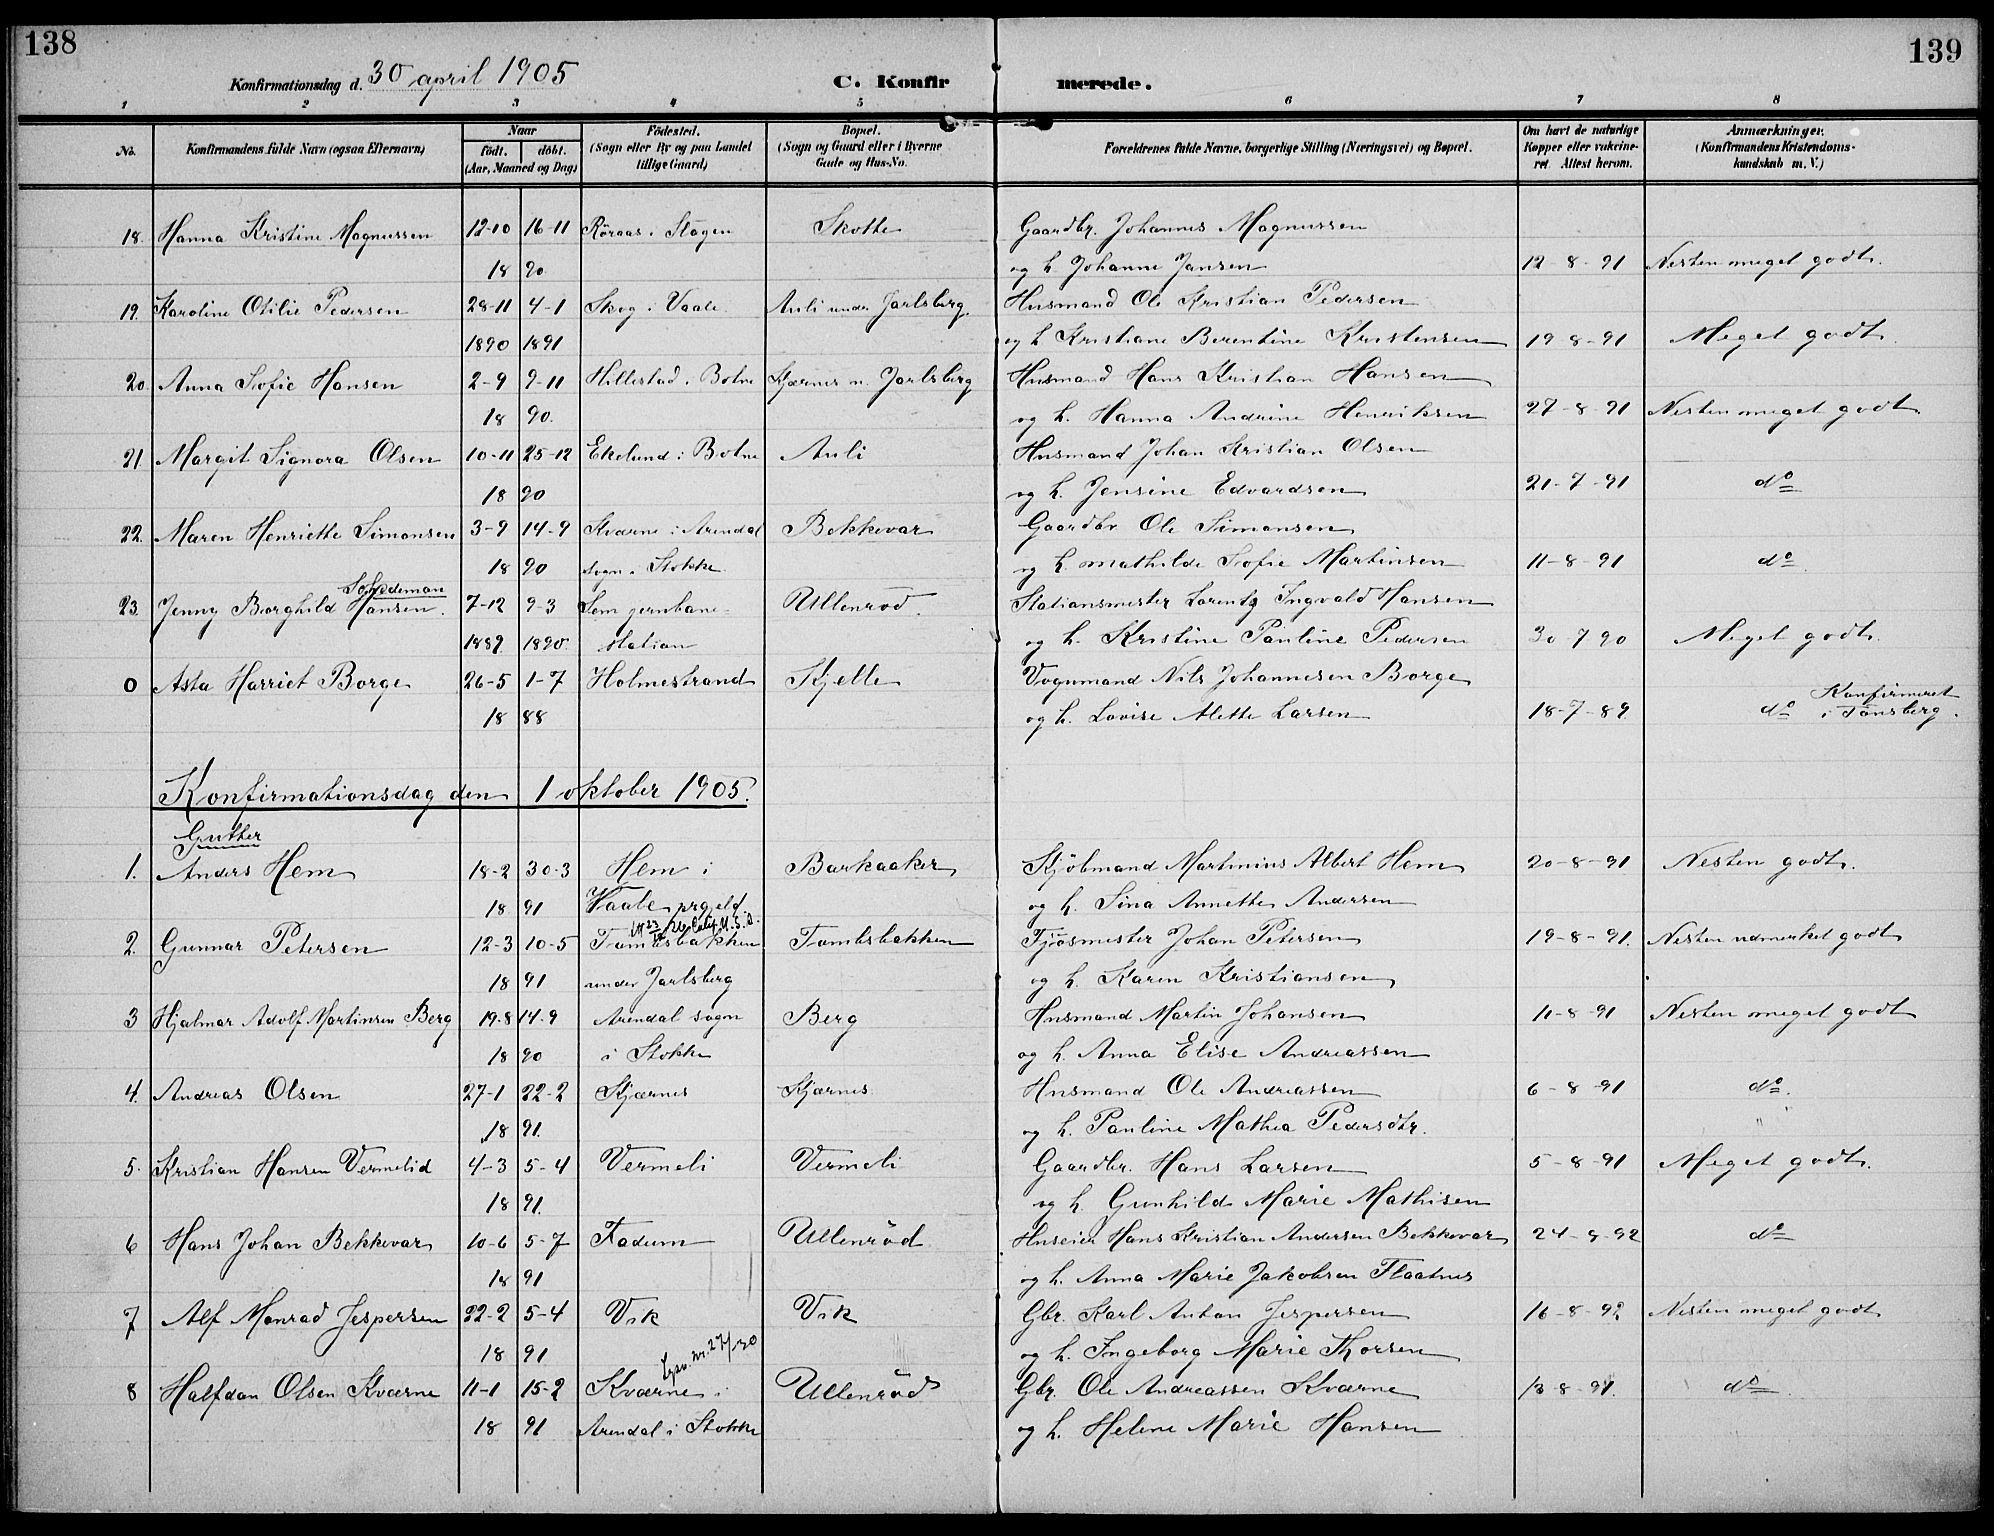 138
139
Konfirmationsdag d. 30 april 1905
C. Konfirmerede.
1 2 3 4 5 6 7 8
No.
Konfirmandens fulde Navn (ogsaa Efternavn)
Naar
födt. döbt.
(Aar, Maaned og Dag)
Födested.
(Sogn eller By og paa Landet
tillige Gaard)
Bopæl.
(Sogn og Gaard eller i Byerne
Gade og Hus-No.
Forældrenes fulde Navne, borgerlige Stilling (Næringsvei) og Bopæl.
Om havt de naturlige
Kopper eller vakcine-
ret Attest herom.
Anmærkninger.
(Konfirmandens Kristendoms-
kundskab m. V.)
18. Hanna Kristine Magnussen 12-10 16-11 Röraas i Slagen Skotte Gaardbr. Johannes Magnussen
18 90 og h Johanne Jansen 12-8-91 Nesten meget godt.
19. Karoline Otilie Pedersen 28-11 4-1 Skog i Vaale. Auli under Jarlsberg. Husmand Ole Kristian Pedersen
1890 1891 og h Kristiane Berentine Kristensen 19-8-91 Meget godt.
20. Anna Sofie Hansen 2-9 9-11 Hillestad i Botne Kjærnes u. Jarlsberg Husmand Hans Kristian Hansen
18 90. og h. Hanna Andrine Henriksen 27-8-91 Nesten meget godt
21. Margit Signora Olsen 10-11 25-12 Ekelund i Botne Auli Husmand Johan Kristian Olsen
18 90 og h. Jensine Edvardsen 21-7-91 do
22. Maren Henriette Simonsen 3-9 14-9 Kværne i Arendal Bekkevar Gaardbr Ole Simonsen
18 90 sogn i Stokke og h. Mathilde Sofie Martinsen 11-8-91 do
23. Jenny Borghild Hansen. 7-12 9-3 Sem jernbane- Ullenrød. Stationsmester Lorentz Ingvald Hansen
1889. 1890. station og h. Kristine Pauline Pedersen 30-7-90 Meget godt.
0 Asta Harriet Borge 26-5 1-7 Holmestrand Kjelle Vognmand Nils Johannesen Borge
18 88 og h. Lovise Alette Larsen 18-7-89. do Konfirmeret
i Tönsberg.
Konfirmationsdag den 1 oktober 1905.
Guther
1. Anders Hem 18-2 30-3 Hem i Barkaaker Kjöbmand Martinius Albert Hem 20-8-91 Nesten godt.
18 91 Vaale prgjeld. og h. Sina Annette Andersen
2. Gunnar Petersen 12-3 10-5 Tombsbakken Tombsbakken Fjösmester Johan Petersen 19-8-91. Nesten udmerket godt
18 91 under Jarlsberg og h. Karen Kristiansen
3 Hjalmar Adolf Martinsen Berg 19-8 14-9 Arendal sogn Berg Husmand Martin Johansen 11-8-91 Nesten meget godt
18 90 i Stokke og h. Anna Elise Andreassen
4. Andreas Olsen 27-1 22-2 Kjærnes Kjærnes Husmand Ole Andreassen 6-8-91 do.
18 91. og h. Pauline Mathea Pedersdtr.
5. Kristian Hansen Vermelid 4-3 5-4 Vermeli Vermeli Gaardbr. Hans Larsen 5-8-91 Meget godt.
18 91. og h. Gunhild Marie Mathisen
6 Hans Johan Bekkevar 10-6 5-7 Fadum Ullenröd Huseier Hans Kristian Andersen Bekkevar 24-8-92 do
18 91 og h. Anna Marie Jakobsen Flaatnes
7 Alf Monrad Jespersen 22-2 5-4 Vik Vik Gbr. Karl Anton Jespersen 16-8-92 Nesten meget godt
18 91 og h. Ingeborg Marie Thorsen
8 Halfdan Olsen Kværne 11-1 15-2 Kværne i Ullenröd Gbr. Ole Andreassen Kværne 13-8-91. do
18 91 Arendal i Stokke og h. Helene Marie Hansen